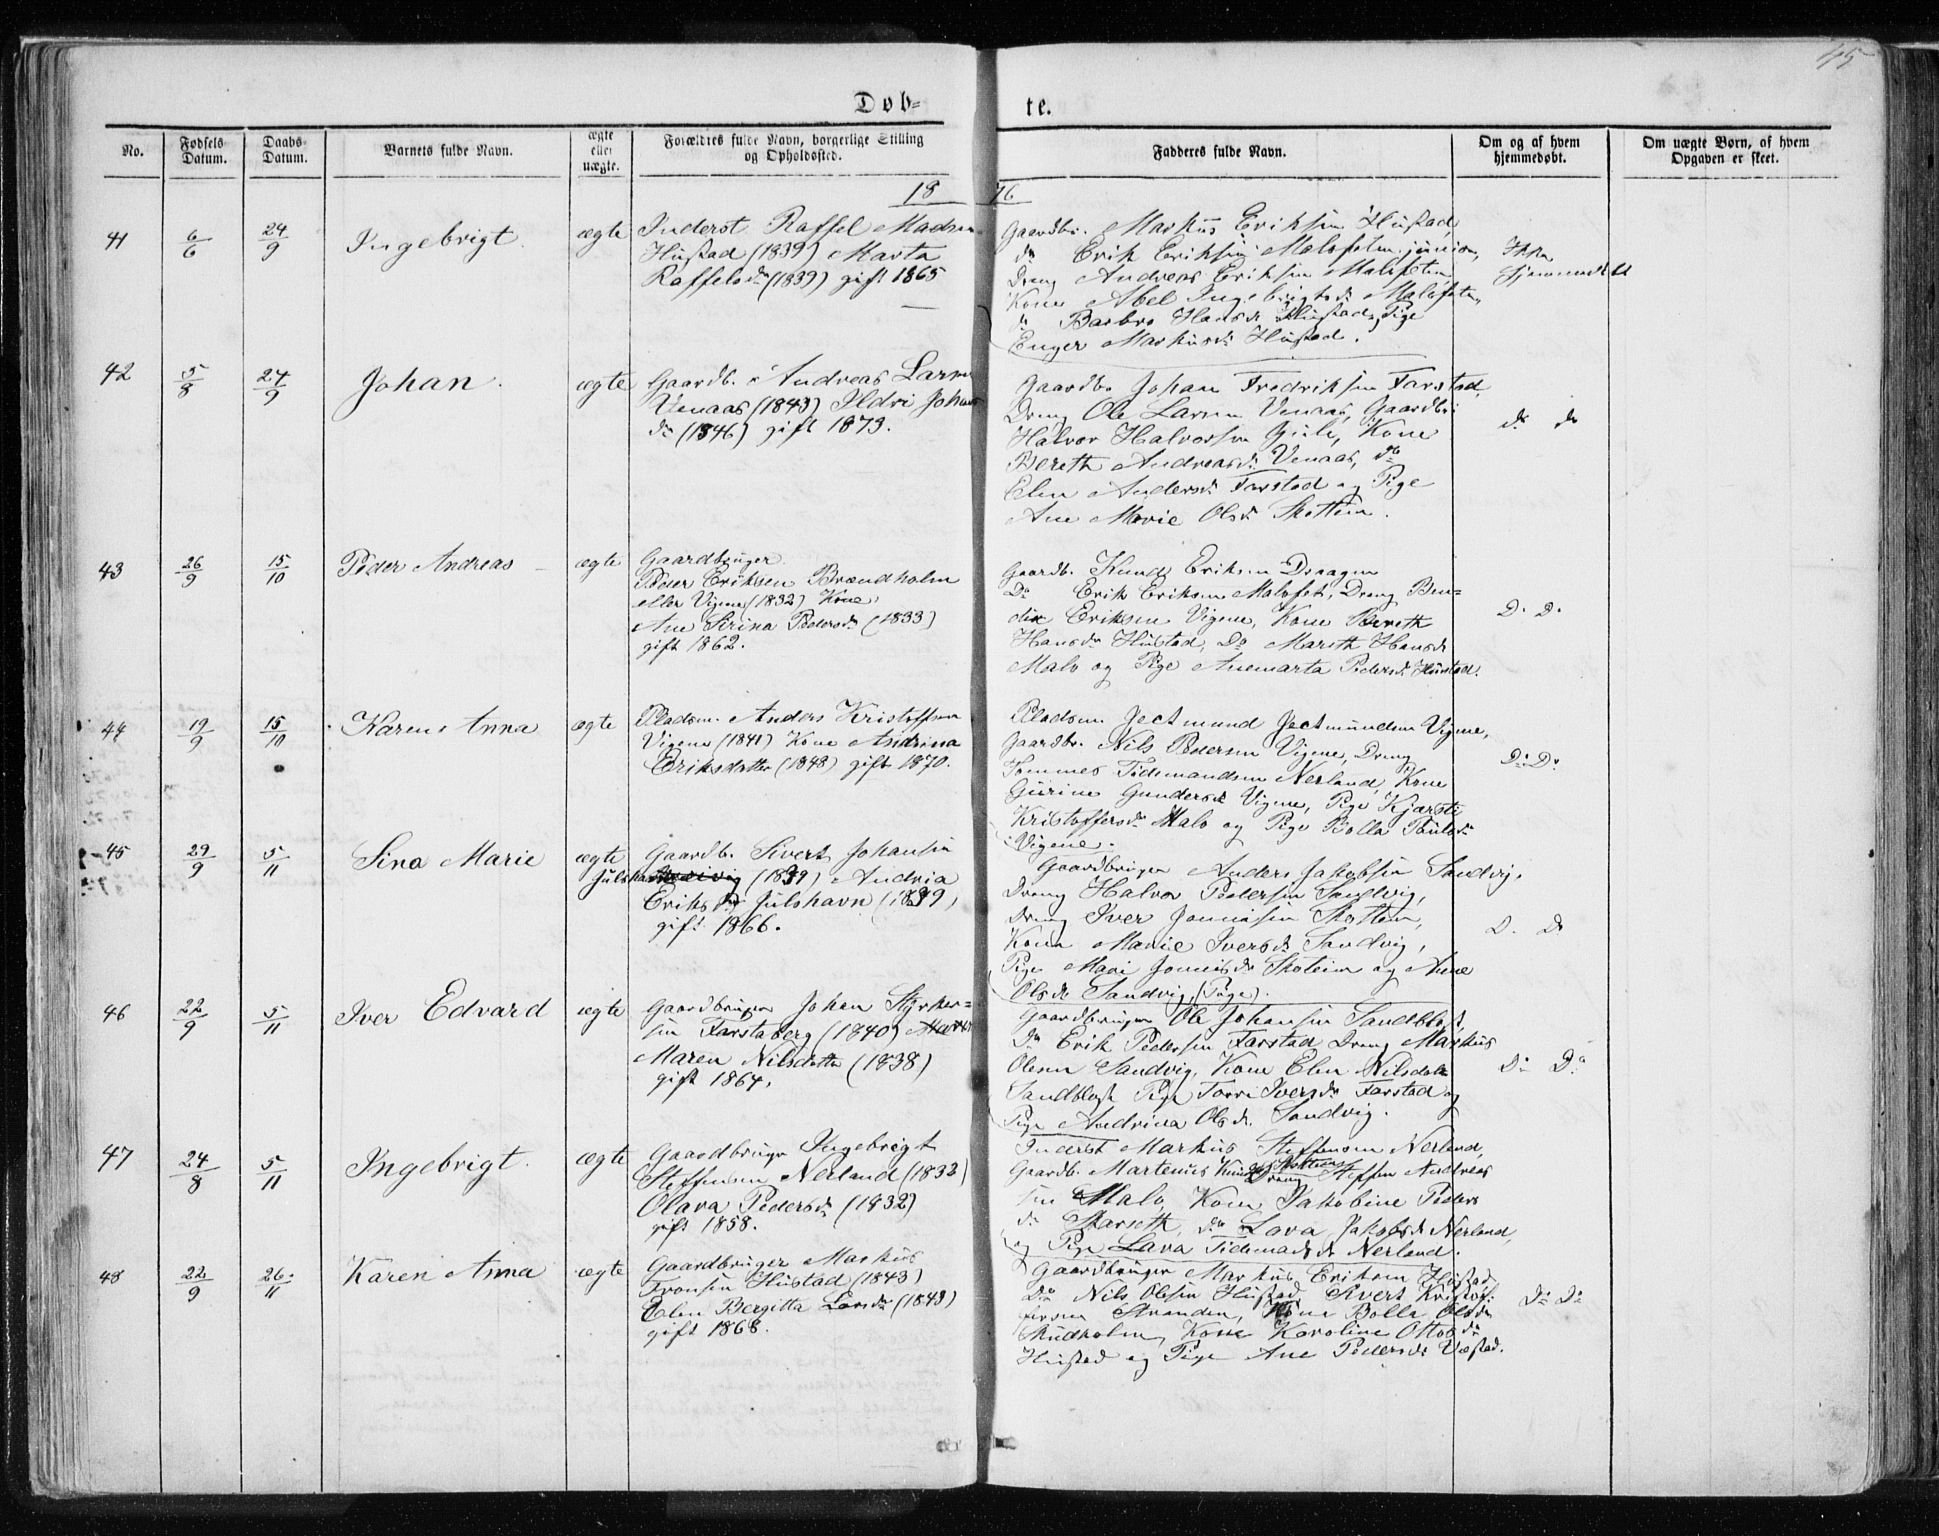 45
Døb=
te.
No.
Fødsels Datum.
Daabs-Datum.
Barnets fulde Navn.
ægte eller uægte.
Forældres fulde Navn, borgerlige Stilling
og Opholdssted.
Fadderes fulde Navn.
Om og af hvem
hjemmedøbt.
Om uægte Børn, af hvem
Opgaven er skeet.
18 76
41 6/6 24/9 Ingebrigt. ægte
Inderst Raffel Madsen
Hustad (1839) Marta
Raffelsdr (1839) gift 1865
Gaardbr. Markus Eriksen Hustad,
do Erik Eriksen Malefeten junior,
Dreng Andreas Eriksen Malefeten
Kone Abel Ingebrigtsdr Malefeten,
do Barbro Hansdr Hustad, Pige
Enger Markusdr Hustad.
Ikke
hjemmedøbt
42 5/8 24/9 Johan. ægte
Gaardb. Andreas Larsen
Venaas (1843) Ildri Johans
dr (1846) gift 1873.
Gaardbr Johan Fredriksen Farstad,
Dreng Ole Larsen Venaas, Gaardbr
Halvor Halvorsen Gule, Kone
Bereth Andreasdr Venaas, do
Elen Andersdr Farstad og Pige
Ane Marie Olsdr Skottem.
do do
43 26/9 15/10 Peder Andreas ægte
Gaardbruger
Peder Eriksen Brændholm
eller Vigene (1832) Kone
Ane Sirina Pedersdr (1833)
gift 1862.
Gaardb. Knud Eriksen Draagen
Do Erik Eriksen Malefet, Dreng Ben=
dix Eriksen Vigene, Kone Bereth
Hansdr Hustad, Do Mareth Hansdr
Malo og Pige Anemarta Pedersdr Hustad.
D. D.
44 19/9 15/10 Karen Anna ægte
Pladsm. Anders Kristoffersen
Vigene (1841) Kone Andrina
Eriksdatter (1848) gift 1870.
Pladsm Jectmund Jectmundsen Vigene,
Gaardbr. Nils Pedersen Vigene, Dreng
Tommes Tidemandsen Nerland, Kone
Gurine Gundersdr Vigene, Pige Kjersti
Kristoffersdr Malo og Pige Bolla Poulsdr
Vigene.
Do Do
45 29/9 5/11 Sina Marie ægte
Gaardb. Sivert Johansen
Julshavn (1839) Andria
Eriksdr Julshavn (1839)
gift 1866.
Gaardbruger Anders Jakobsen Sandvig,
Dreng Halvor Pedersen Sandvig,
Dreng Iver Jonnisen Skottem,
Kone Marie Iversdr Sandvig,
Pige Mari Jonnisdr Skoteim og Anne
Olsdr Sandvig (Pige).
D. Do
46 22/9 5/11 Iver Edvard ægte
Gaardbruger Johan Styrker-
sen Farstaberg (1840)
Maren Nilsdatter (1838)
gift 1864.
Gaardbruger Ole Johansen Sandblost,
Do Erik Pedersen Farstad Dreng Markus
Olesen Sandvig, Kone Elen Nilsdatter
Sandblost Pige Torri Iversdr Farstad og
Pige Andrina Olsdr. Sandvig.
Do Do
47 24/8 5/11 Ingebrigt. ægte
Gaardbruger Ingebrigt
Steffensen Nerland (1832)
Olava Pedersdr (1832)
gift 1858.
Inderst Markus Steffensen Nerland,
Gaardb. Martenius Dreng Steffen Andreas
sen Malo, Kone Jakobine Peders
dr Skarseth, do Lava Jakobsdr Nerland,
og Pige Lava Tidemadsdr Nerland.
48 22/9 26/11 Karen Anna ægte
Gaardbruger Markus
Fransen Hustad (1843)
Elen Bergitta Larsdr (1843)
gift 1868.
Gaardbruger Markus Eriksen Hustad
Do Nils Olsen Hustad, Sivert Kristof:
fersen Stranden, Kone Bolla Olsdr
Skudholm, Kone Karoline Ottosdr
Hustad og Pige Ane Pedersdr Vestad.
Do Do